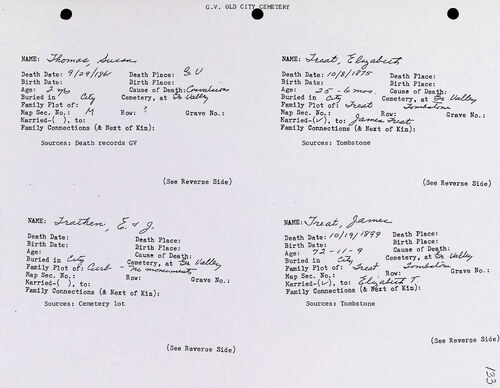 G.V. OLD CITY CEMETERY
NAME: Thomas, Susan
Death Date: 9/29/186 Death Place: G V
Birth Date: Birth Place:
Age: 2 yrs Cause of Death: Convulsions
Buried in City Cemetery, at Gr Valley
Family Plot of:
Map Sec. No.: M Row: ? Grave No.:
Married-( ), to:
Family Connections (& Next of Kin):
Sources: Death records GV
(See Reverse Side)
NAME: Treat, Elizabeth
Death Date: 10/8/1875 Death Place:
Birth Date: Birth Place:
Age: 25-6 mos. Cause of Death:
Buried in City Cemetery, at Gr Valley
Family Plot of: Treat Tombstone
Map Sec. No.: Row: Grave No.:
Married-(✓), to: James Treat
Family Connections (& Next of Kin):
Sources: Tombstone
(See Reverse Side)
NAME: Trathen, E. & J.
Death Date: Death Place:
Birth Date: Birth Place:
Age: Cause of Death:
Buried in City Cemetery, at Gr Valley
Family Plot of: Curb - no monuments
Map Sec. No.: Row: Grave No.:
Married-( ), to:
Family Connections (& Next of Kin):
Sources: Cemetery lot
(See Reverse Side)
NAME: Treat, James
Death Date: 10/19/1899 Death Place:
Birth Date: Birth Place:
Age: 72-11-9 Cause of Death:
Buried in City Cemetery, at Gr Valley
Family Plot of: Treat Tombstone
Map Sec. No.: Row: Grave No.:
Married-(✓), to: Elizabeth T.
Family Connections (& Next of Kin):
Sources: Tombstone
(See Reverse Side)
133